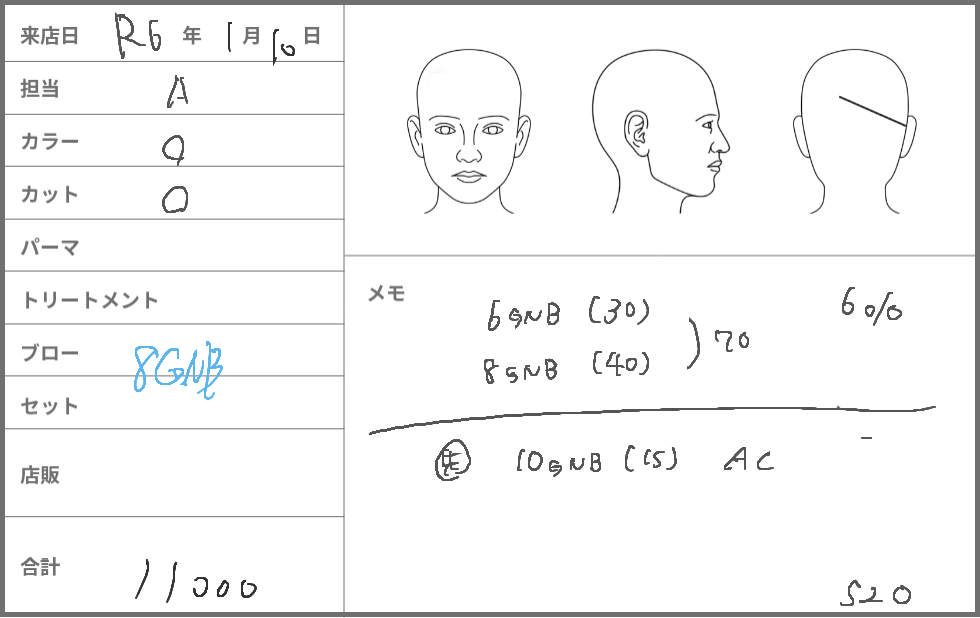 来店日 R6 年 1 月 10 日
担当 A
カラー ○
カット ○
パーマ
トリートメント
ブロー 8GNB
セット
店販
合計 11000
メモ
6GNB (30)
8GNB (40)
) 70
6%
10GNB (15) AC
520